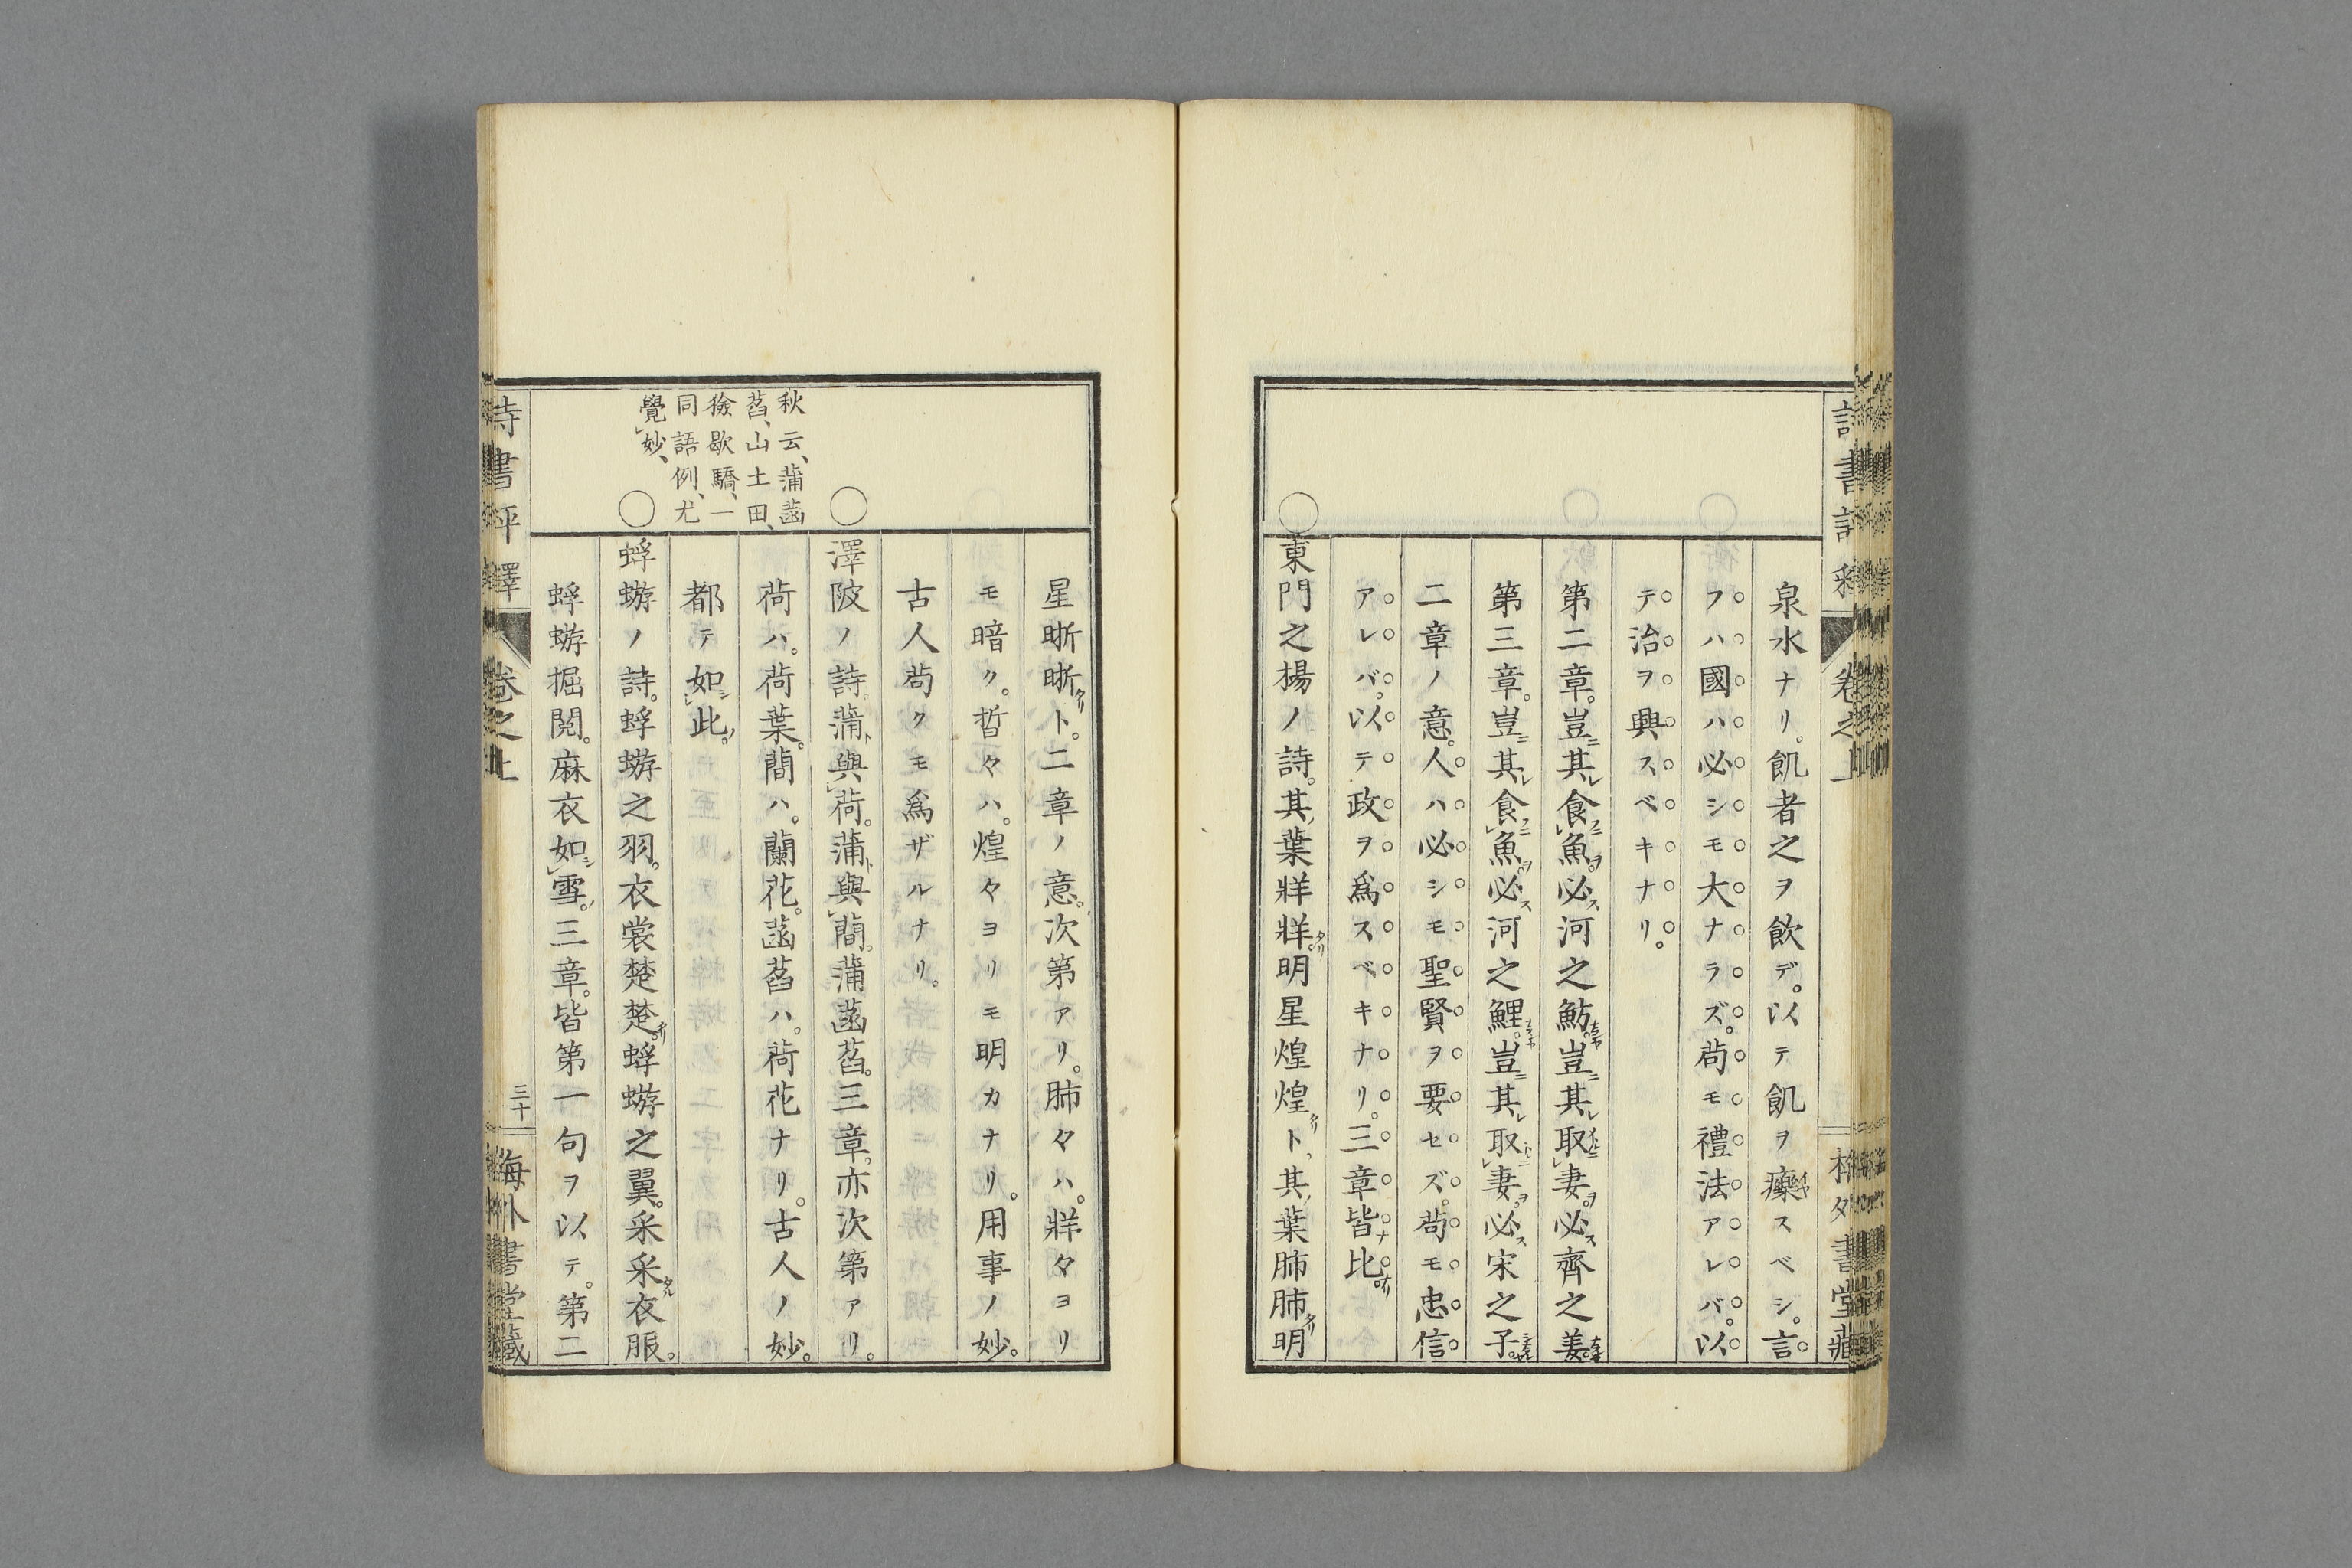 泉水ナリ。飢者之ヲ飲デ。以テ飢ヲ㿑スベシ。言
フハ國ハ必シモ大ナラズ。苟モ禮法アレバ。以
テ治ヲ興スベキナリ。
第二章。豈ニ其レ食フニ魚ヲ。必ス河之魴ナランヤ。豈ニ其レ取ルニ妻ヲ。必ス齊之姜ナランヤ。
第三章。豈ニ其レ食フニ魚ヲ。必ス河之鯉ナランヤ。豈ニ其レ取ルニ妻ヲ。必ス宋之子ナランヤ。
二章ノ意。人ハ必シモ聖賢ヲ要セズ。苟モ忠信
アレバ。以テ政ヲ爲スベキナリ。三章皆ナ比ナリ。
○東門之楊ノ詩。其ノ葉牂牂タリ。明星煌煌タリト。其ノ葉肺肺タリ。明
星晣晣タリト。二章ノ意。次第アリ。肺々ハ。牂々ヨリ
モ暗ク。晢々ハ。煌々ヨリモ明カナリ。用事ノ妙。
古人苟クモ爲ザルナリ。
○澤陂ノ詩。蒲ト與荷。蒲ト與蕑。蒲菡萏。三章。亦次第アリ。
荷ハ。荷葉。蕑ハ。蘭花。菡萏ハ。荷花ナリ。古人ノ妙。
都テ如シ此ノ。
○蜉蝣ノ詩。蜉蝣之羽。衣裳楚楚タリ。蜉蝣之翼。采采タル衣服。
蜉蝣掘閲。麻衣如シ雪ノ。三章。皆第一句ヲ以テ。第二
秋云、蒲菡
萏、山土田、
獫歇驕、一
同語例、尤
覺妙、
詩書評釋
卷之上
三十
梅外書堂藏